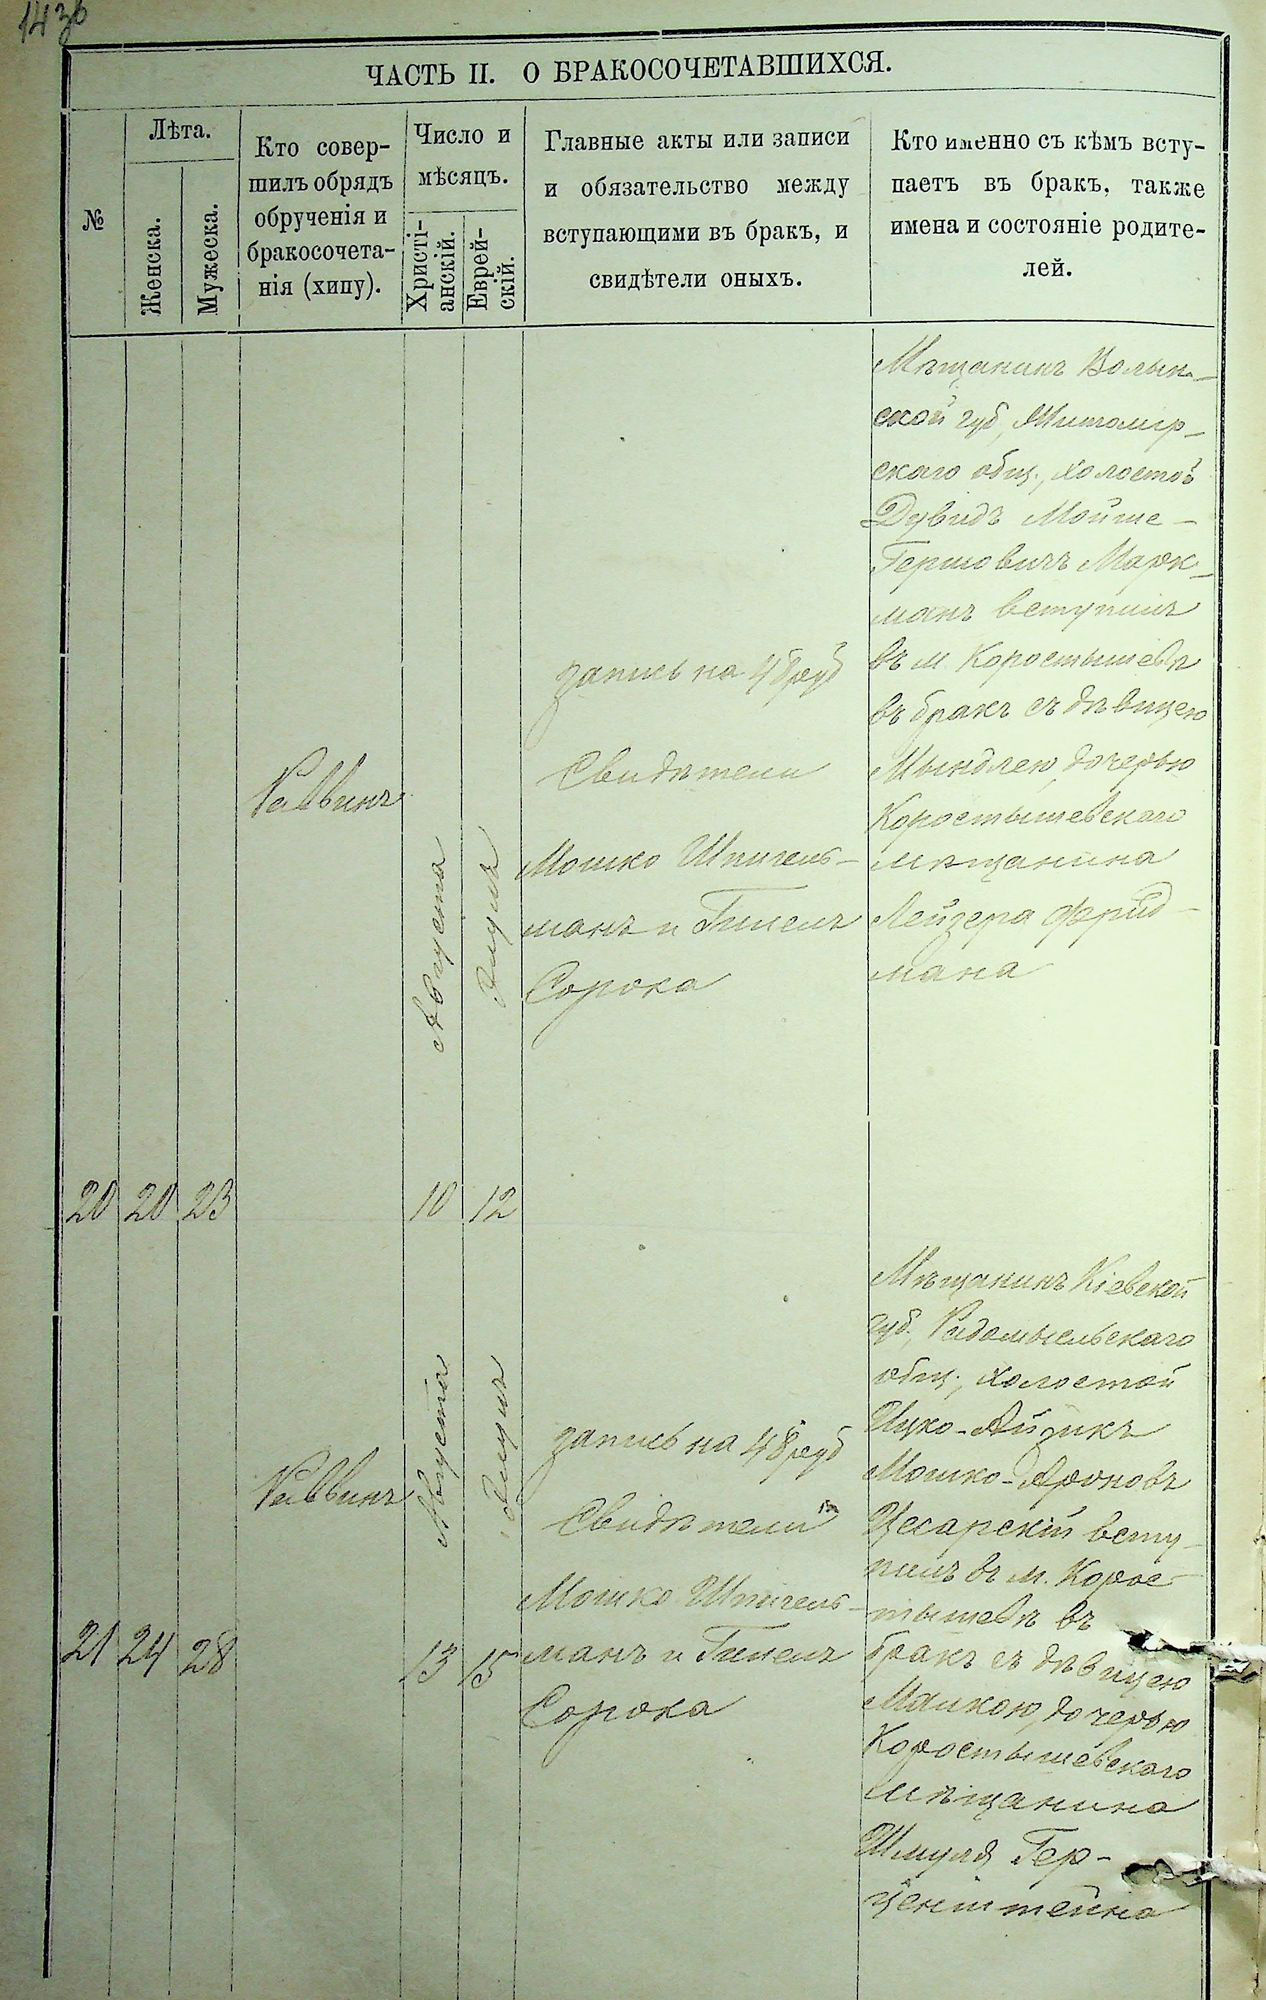 143б
ЧАСТЬ II. О БРАКОСОЧЕТАВШИХСЯ.
№
Лѣта.
Женска.
Мужеска.
Кто совер-
шилъ обрядъ
обрученія и
бракосочета-
нія (хипу).
Число и
мѣсяцъ.
Христі-
анскій.
Еврей-
скій.
Главные акты или записи
и обязательство между
вступающими въ бракъ, и
свидѣтели оныхъ.
Кто именно съ кѣмъ всту-
паетъ въ бракъ, также
имена и состояніе родите-
лей.
20
20
23
Раввинъ
Августа
10
12
запись на 48 руб
Свидѣтели
Мошко Шпигель-
манъ и Гимпель
Сорока
Мѣщанинъ Волын-
ской губ, Житомір-
скаго общ., холостой
Дувидъ Мойше-
Гершовичъ Марк-
манъ вступилъ
въ м Коростышевѣ
въ бракъ съ дѣвицею
Мындлею, дочерью
Коростышевскаго
мѣщанина
Лейзера Фрид-
мана
21
24
28
Раввинъ
Августа
13
15
запись на 48 руб
Свидѣтели
Мошко Шпигель-
манъ и Гимпель
Сорока
Мѣщанинъ Кіевской
губ, Радомысльскаго
общ., холостой
Ицко-Айзикъ
Мошко-Ароновъ
Цесарскій всту-
пилъ въ м. Корос-
тышевѣ въ
бракъ съ дѣвицею
Малкою, дочерью
Коростышевскаго
мѣщанина
Шмуля Гер-
ценштейна